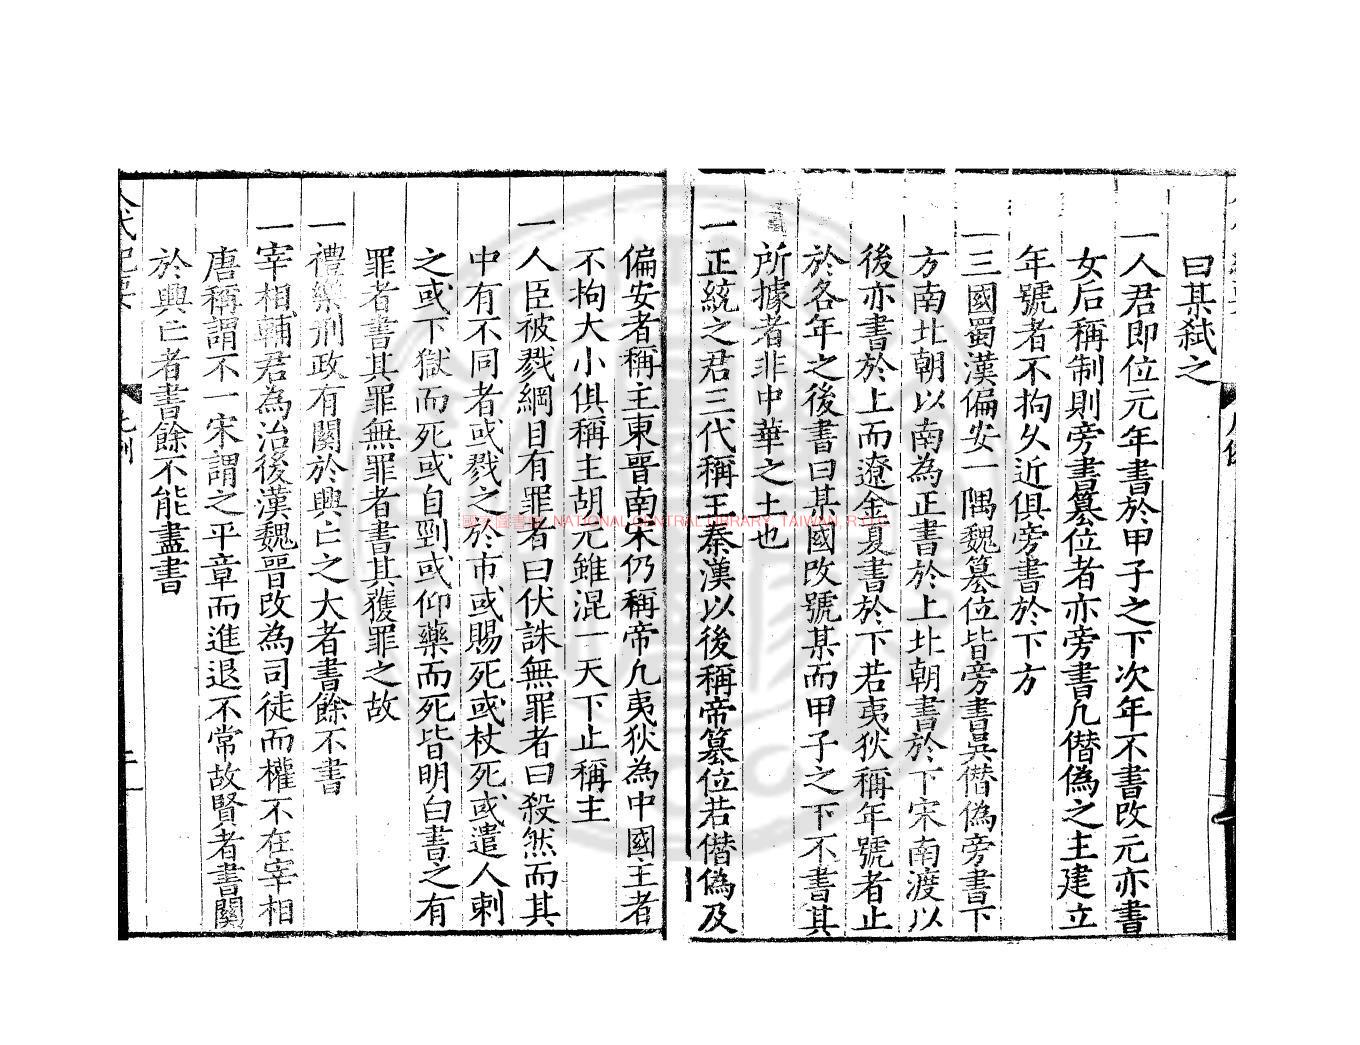 曰某弑之
一人君即位元年書於甲子之下次年不書改元亦書
女后稱制則旁書篡位者亦旁書凡僣偽之主建立
年號者不拘久近俱旁書於下方
一三國蜀漢偏安一隅魏篡位皆旁書吳僣偽旁書下
方南北朝以南為正書於上北朝書於下宋南渡以
後亦書於上而遼金夏書於下若夷狄稱年號者止
於各年之後書曰某國改號某而甲子之下不書其
所據者非中華之土也
一正統之君三代稱王秦漢以後稱帝篡位若僣偽及
偏安者稱主東晋南宋仍稱帝凡夷狄為中國主者
不拘大小俱稱主胡元雖混一天下止稱主
一人臣被戮綱目有罪者曰伏誅無罪者曰殺然而其
中有不同者或戮之於市或賜死或杖死或遣人刺
之或下獄而死或自剄或仰藥而死皆明白書之有
罪者書其罪無罪者書其獲罪之故
一禮樂刑政有關於興亡之大者書餘不書
一宰相輔君為治後漢魏晋改為司徒而權不在宰相
唐稱謂不一宋謂之平章而進退不常故賢者書關
於興亡者書餘不能盡書
國家圖書館 NATIONAL CENTRAL LIBRARY, TAIWAN, R.O.C.